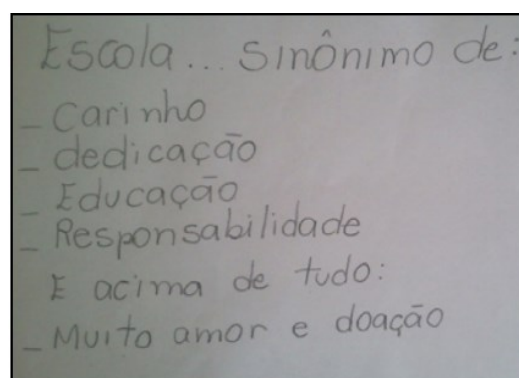 Escola... Sinônimo de:
_ Carinho
_ dedicação
_ Educação
_ Responsabilidade
E acima de tudo:
_ Muito amor e doação